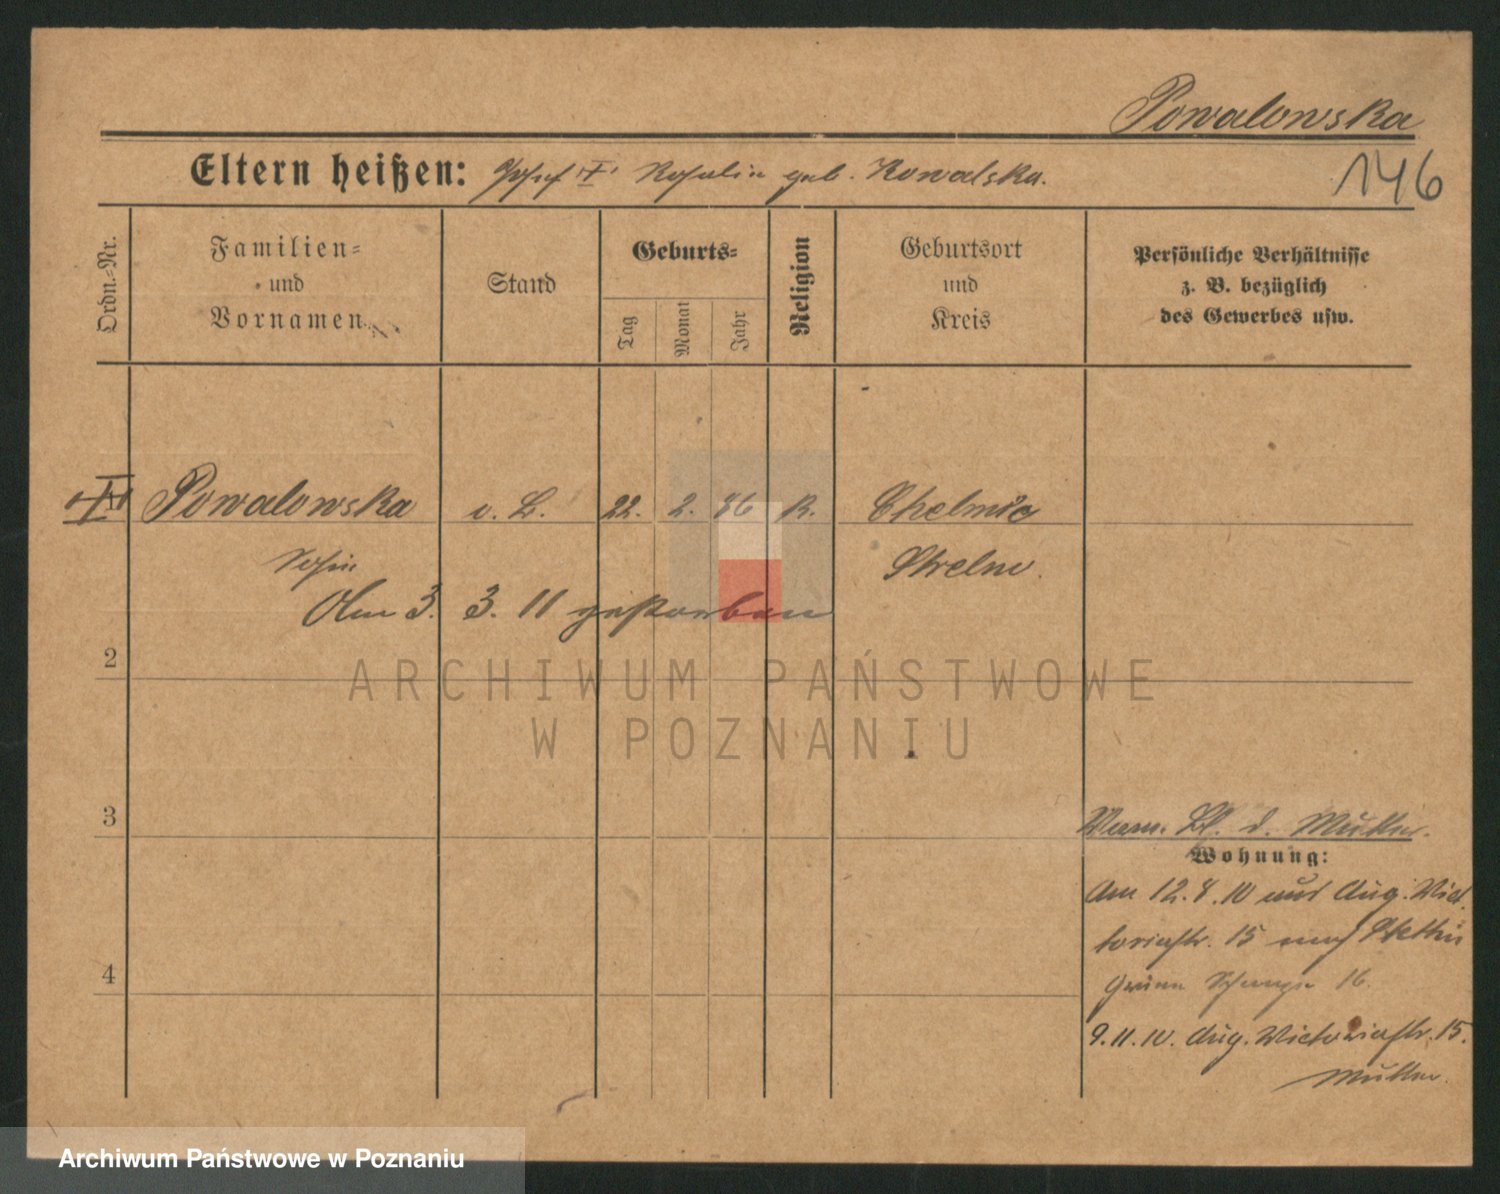 Powalowska
146
Eltern heißen: Josef "†" Rosalie geb. Kowalska.
Ordn.-Nr.
Familien-
und
Vornamen
Stand
Geburts-
Tag
Monat
Jahr
Religion
Geburtsort
und
Kreis
Persönliche Verhältnisse
z. B. bezüglich
des Gewerbes usw.
Powalowska v. L. 22. 2. 86 K. Chelmic
Strelno.
Am 3. 3. 11 gestorben
2
3
4
d. Mutter.
Wohnung:
Am 12.8.10 Aug. Vict
toriastr. 15 nach Stettin
Grüne Schanze 16.
9.11.10. Aug. Victoriastr. 15.
Mutter.
ARCHIWUM PAŃSTWOWE
W POZNANIU
Archiwum Państwowe w Poznaniu